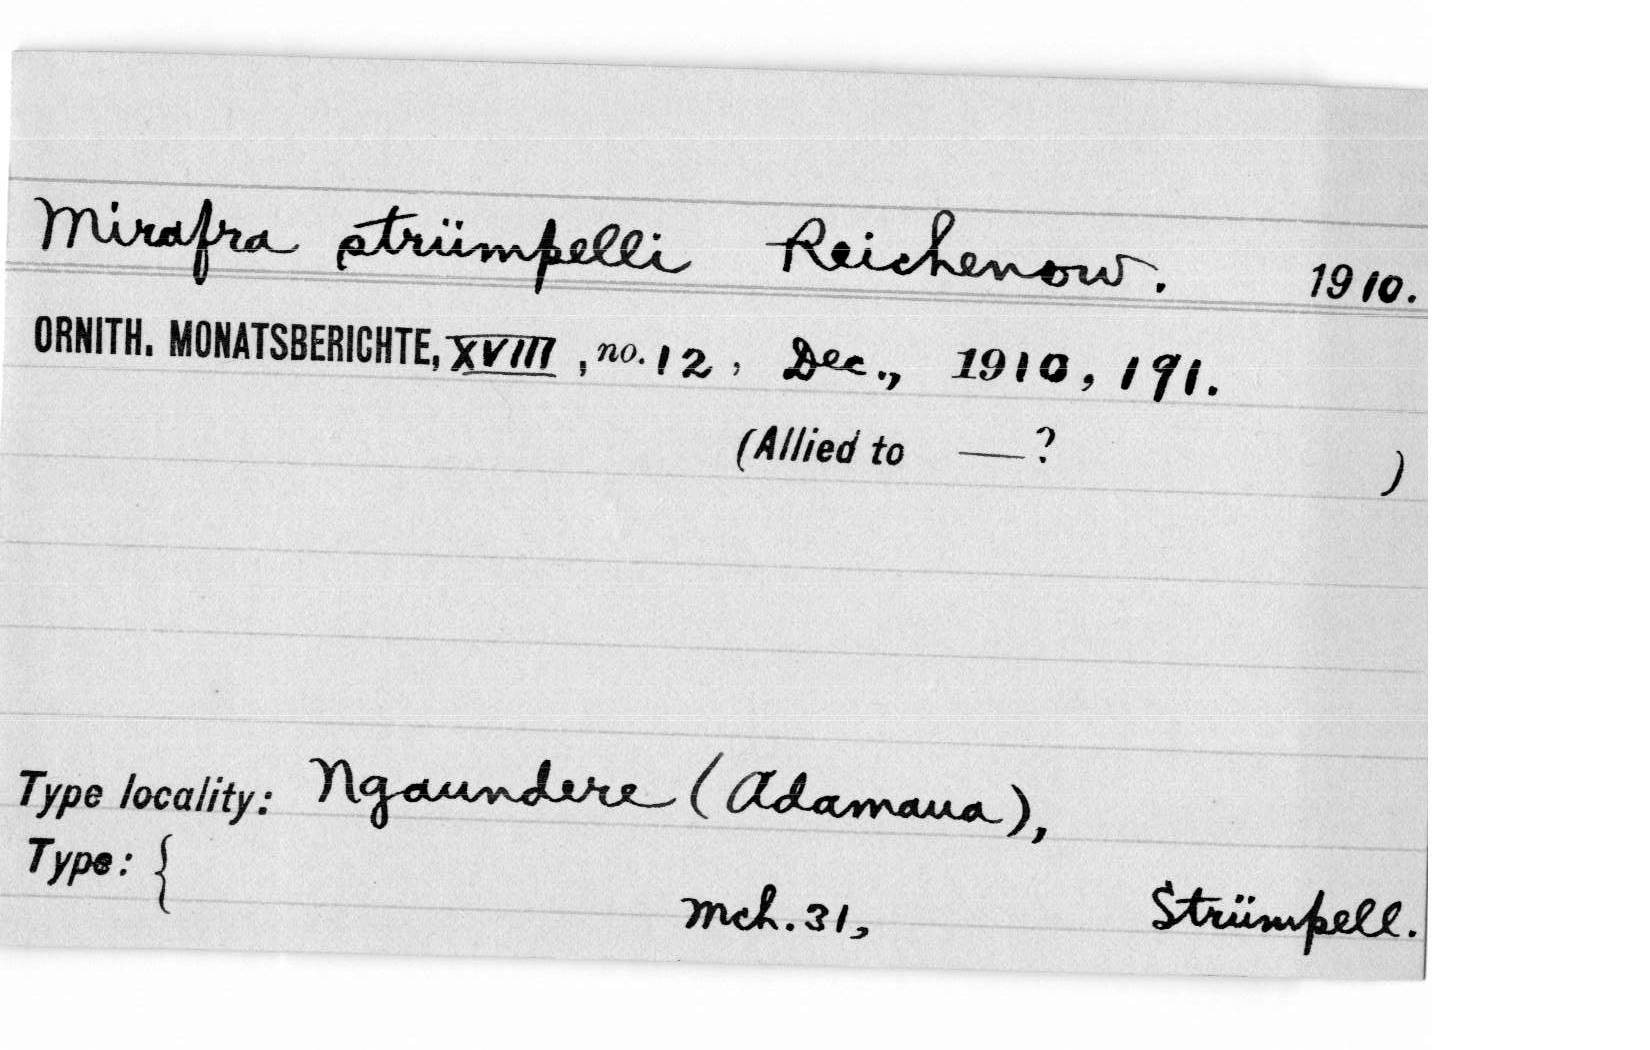 Mirafra strümpelli Reichenow. 1910.
ORNITH. MONATSBERICHTE, XVIII, no. 12, Dec., 1910, 191.
(Allied to —? )
Type locality: Ngaundere (Adamaua),
Type: {
Mch. 31, Strümpell.